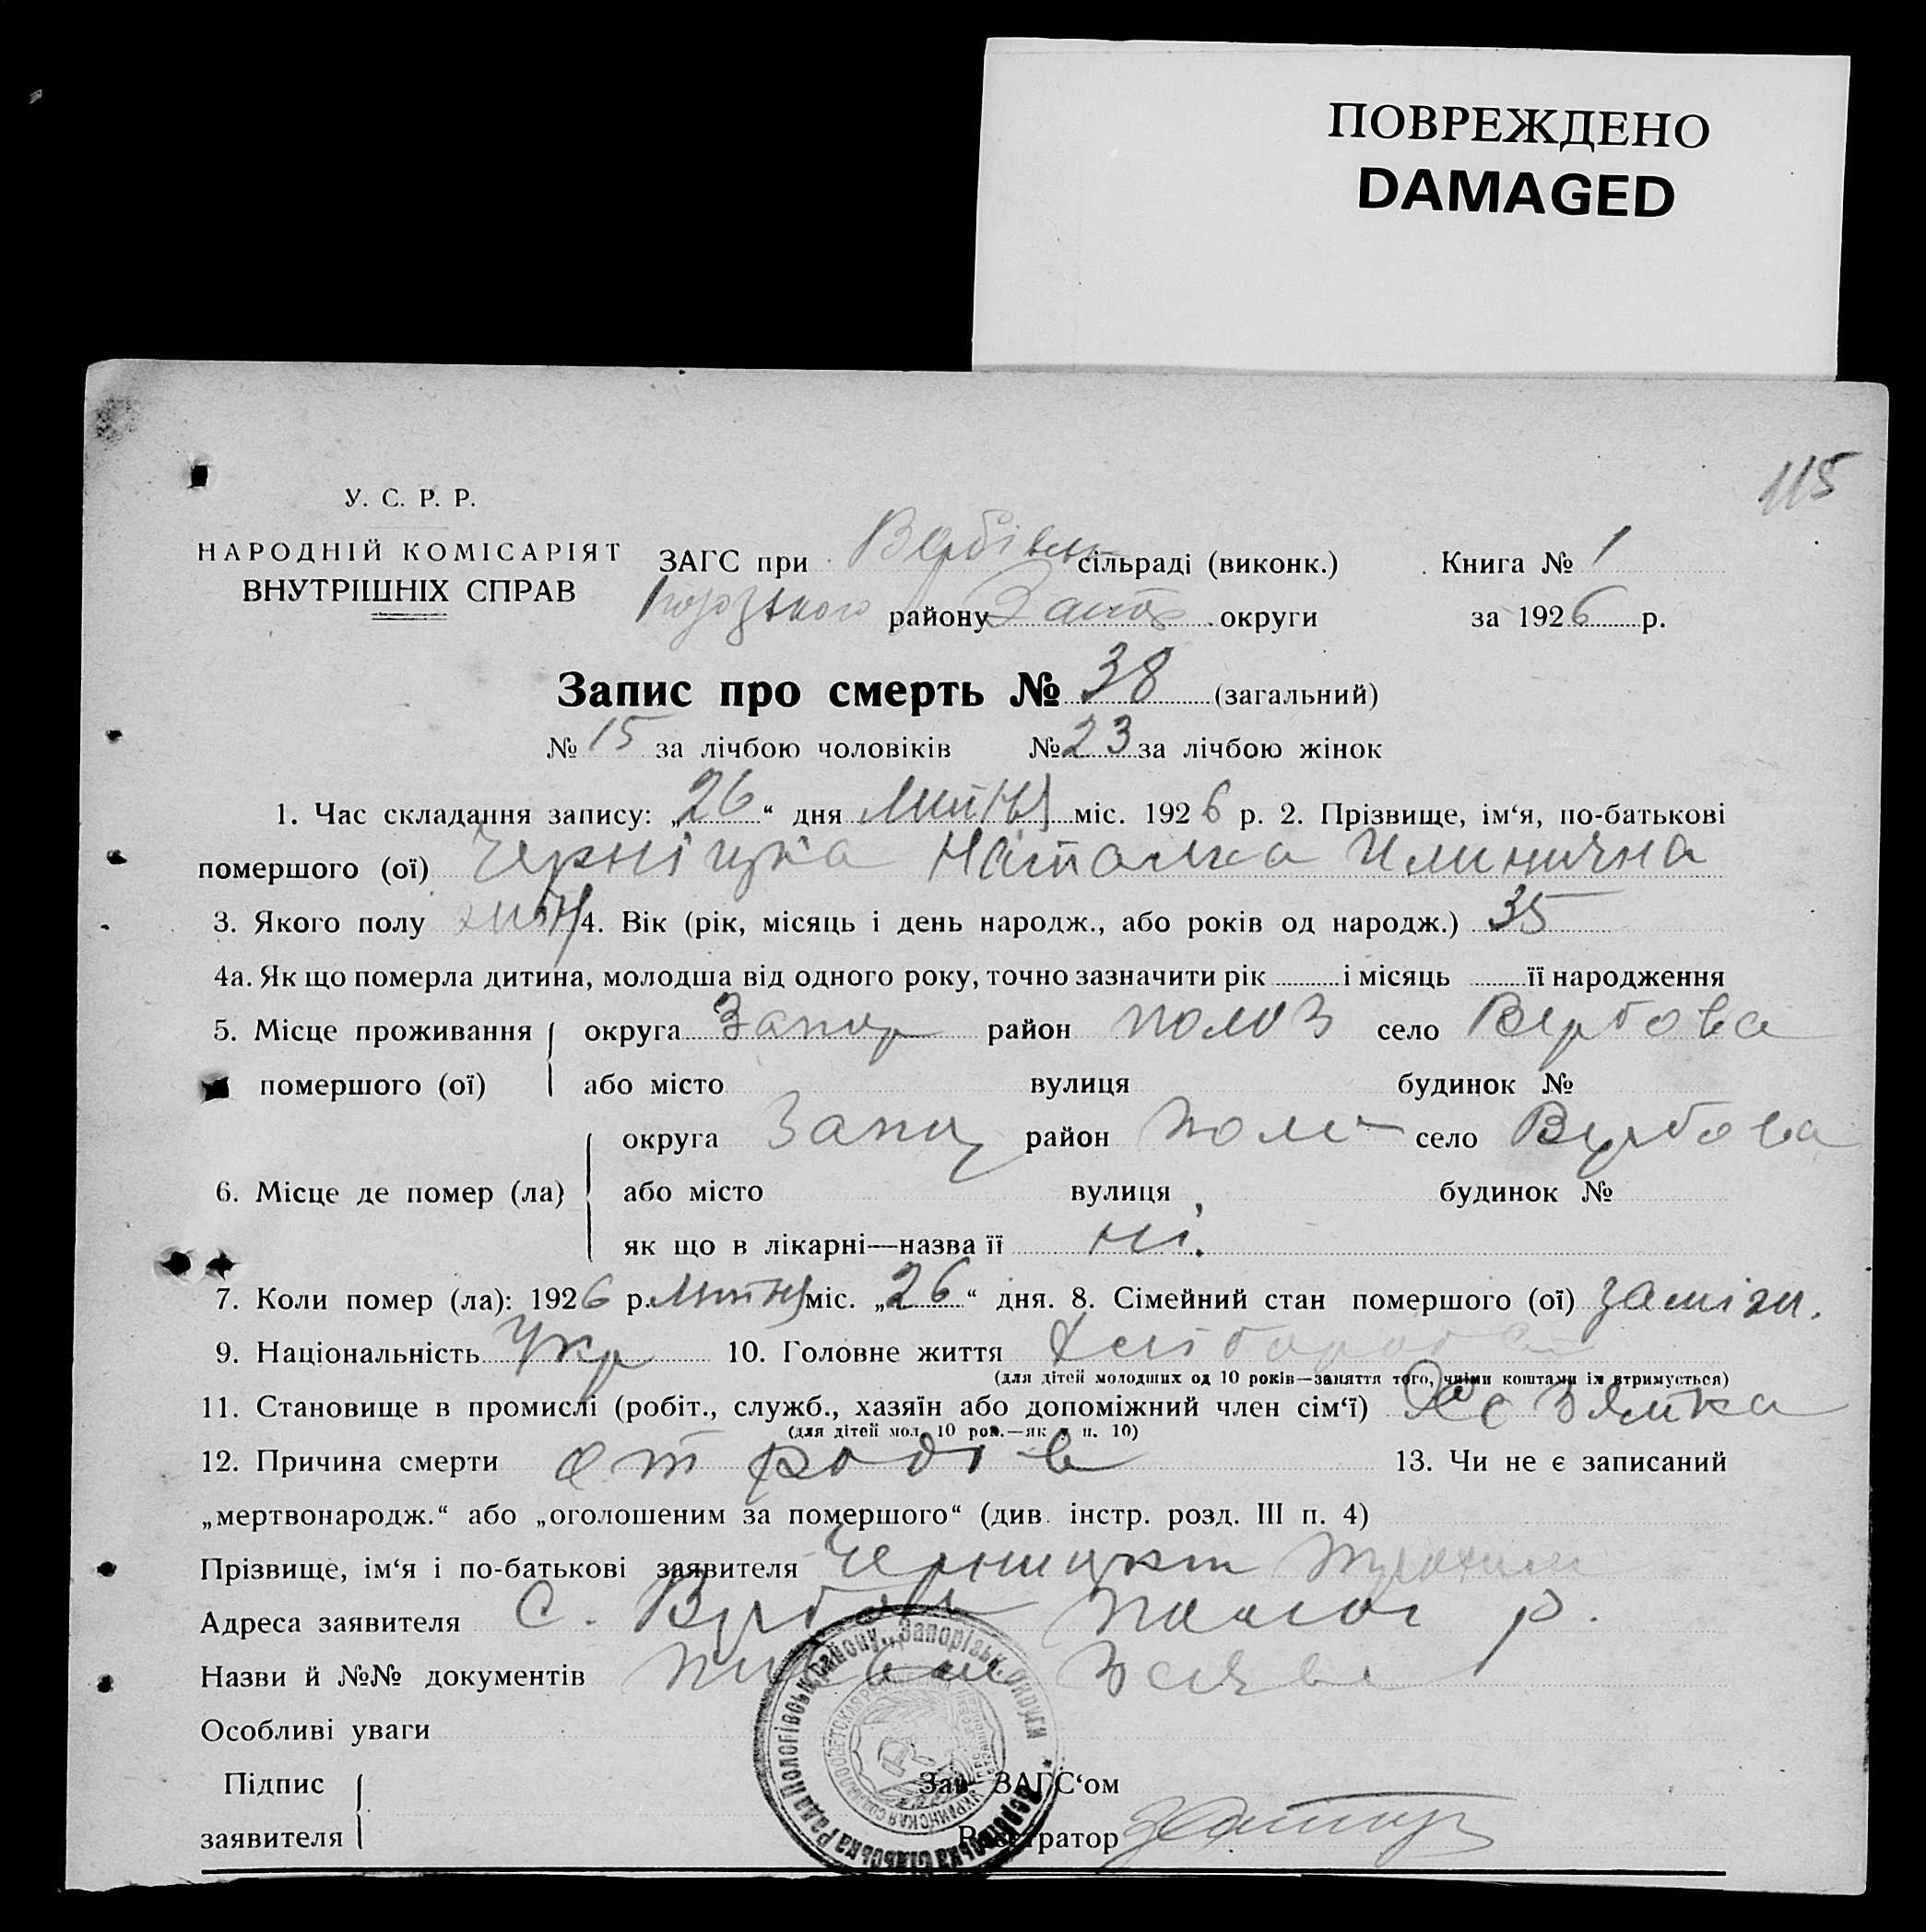 ПОВРЕЖДЕНО
DAMAGED
115
У. С. Р. Р.
НАРОДНІЙ КОМІСАРІЯТ
ВНУТРІШНІХ СПРАВ
ЗАГС при Вербівськ сільраді (виконк.) Книга № 1
району Запор округи за 1926 р.
Запис про смерть № 38 (загальний)
№ 15 за лічбою чоловіків № 23 за лічбою жінок
1. Час складання запису: „26“ дня липня міс. 1926 р. 2. Прізвище, ім‘я, по-батькові
помершого (ої) Черніцька Наталка
3. Якого полу 4. Вік (рік, місяць і день народж., або років од народж.) 35
4а. Як що померла дитина, молодша від одного року, точно зазначити рік і місяць її народження
5. Місце проживання округа Запор район Полоз село Вербова
помершого (ої) або місто вулиця будинок №
округа Запор район Пол село Вербова
6. Місце де помер (ла) або місто вулиця будинок №
як що в лікарні—назва її ні.
7. Коли помер (ла): 1926 р. липня міс. „26“ дня. 8. Сімейний стан помершого (ої) заміжн.
9. Національність Укр 10. Головне життя хлібороб
(для дітей молодших од 10 років—заняття того, чиїми коштами їх втримується)
11. Становище в промислі (робіт., служб., хазяїн або допоміжний член сім‘ї)
(для дітей мол. 10 рок.—як у п. 10)
12. Причина смерти от родів 13. Чи не є записаний
„мертвонародж.“ або „оголошеним за помершого“ (див. інстр. розд. III п. 4)
Прізвище, ім‘я і по-батькові заявителя Черницкий Трохим
Адреса заявителя с. Вербов Полог р.
Назви й №№ документів
Особливі уваги
Підпис Зав. ЗАГС‘ом
заявителя Реєстратор
Вербівська сільська Рада Пологівськ. району, Запорізьк. округи